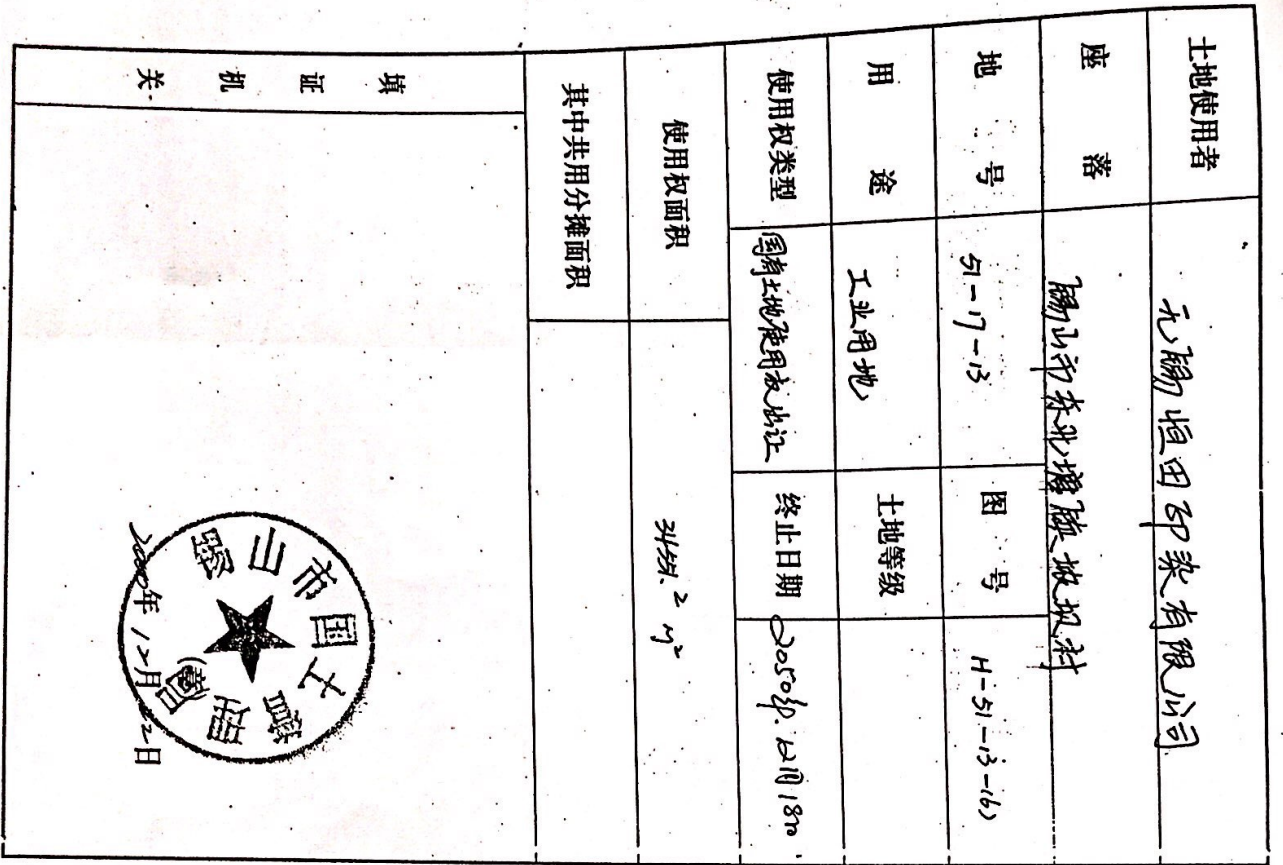 土地使用者 无锡恒田印染有限公司
座落 锡山市东北塘
地号 51-17-13 图号 H-51-13-(16)
用途 工业用地 土地等级
使用权类型 国有土地使用权出让 终止日期 2050年12月18日
使用权面积 m²
其中共用分摊面积
填证机关
锡山市国土管理局
2000年12月22日